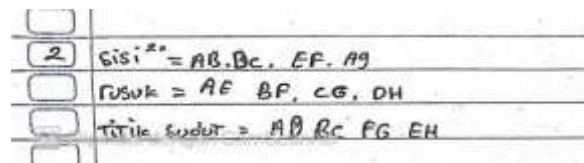 2 sisi²" = AB. BC. EF. AG
rusuk = AE BF. CG. DH
Titik sudut = AB BC FG EH